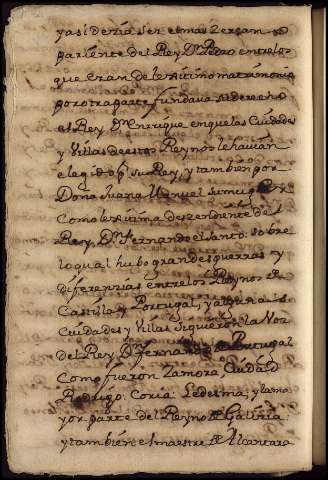 y asi dezia ser el mas zercano
pariente del Rey Dn. Pedro entre los
que eran de lexitimo matrimonio
por otra parte fundava su derecho
el Rey Dn. Enrrique en que las Ciudades
y Villas de estos Reynos le havian
elegido pr. su Rey, y tambien por
Doña Juana Manuel su muger
Como lexitima dezendiente del
Rey Dn. Fernando el santo: sobre
lo qual hubo grandes guerras y
diferenzias entre los Reynos de
Castilla y Portugal, y algunas
Cuidades y Villas siguieron la Voz
del Rey Dn. fernando de Portugal
Como fueron Zamora, Cuidad
Rodrigo: Coria: Ledesma; y la ma
yor parte del Reyno de Galizia:
y tambien el maestre de Alcantara